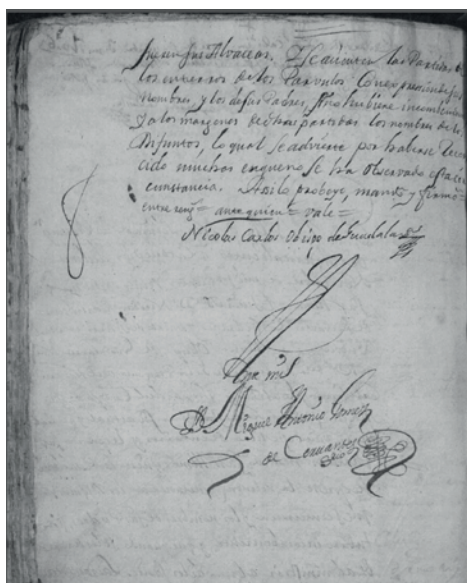 fueren sus Alvaceas. Y se asienten las Partidas de
los entierros de los Parvulos Con expression de sus
nombres, y los de sus Padres, si no hubiere inconveniente
Y a los margenes de dhas partidas los nombres de los
Difuntos, lo qual se advierte por haberse Recono
cido muchas en que no se ha observado esta cir
cunstancia. Assi lo probeyo, mando, y firmo =
entre reng.s = ante quien = vale =
Nicolas Carlos Obispo de Guadalax.a
Ante mi
Miguel Antonio
de Cervantes